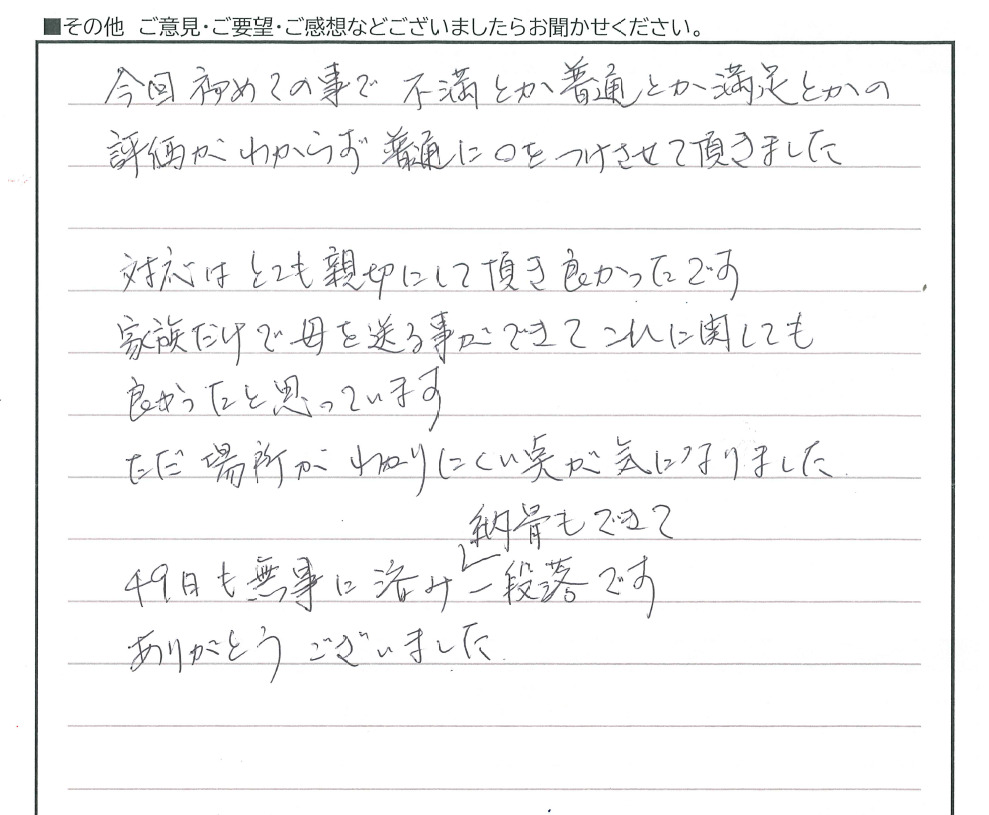 ■その他 ご意見・ご要望・ご感想などございましたらお聞かせください。
今回初めての事で 不満とか普通とか満足とかの
評価がわからず普通に○をつけさせて頂きました
対応はとても親切にして頂き良かったです
家族だけで母を送る事ができてこれに関しても
良かったと思っています
ただ場所がわかりにくい点が気になりました
納骨もできて
49日も無事に済み一段落です
ありがとうございました